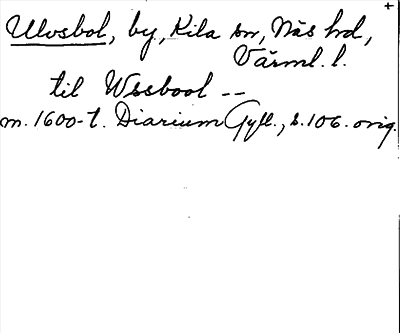 Ulvsbol, by, Kila sn, Näs hrd,
Värml. l.
til Wssbool --
m. 1600-t. Diarium Gyll., s. 106. orig.